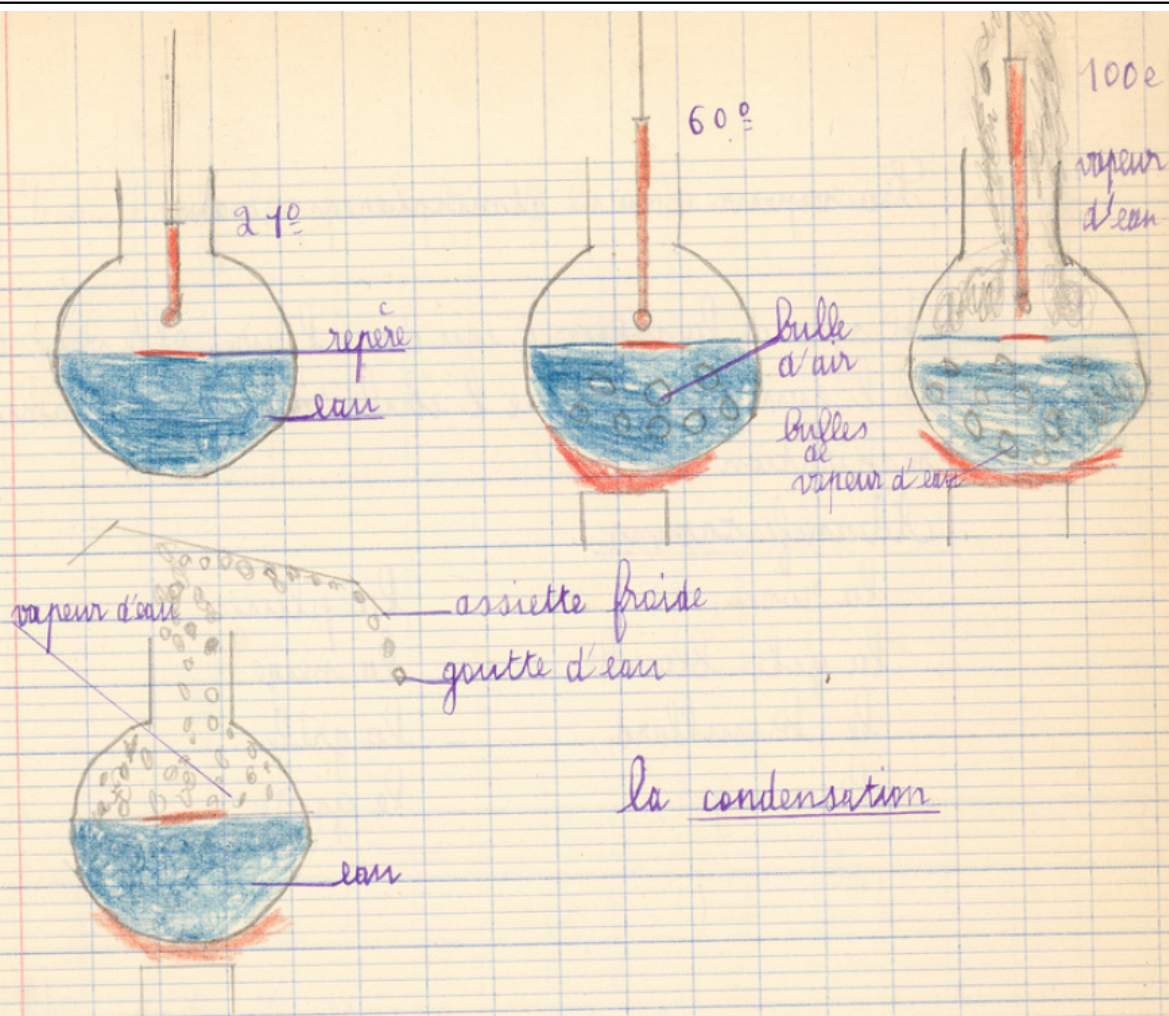 21º
repère
eau
60º
bulle
d'air
bulles
de
vapeur d'eau
100e
vapeur
d'eau
vapeur d'eau
assiette froide
goutte d'eau
la condensation
eau